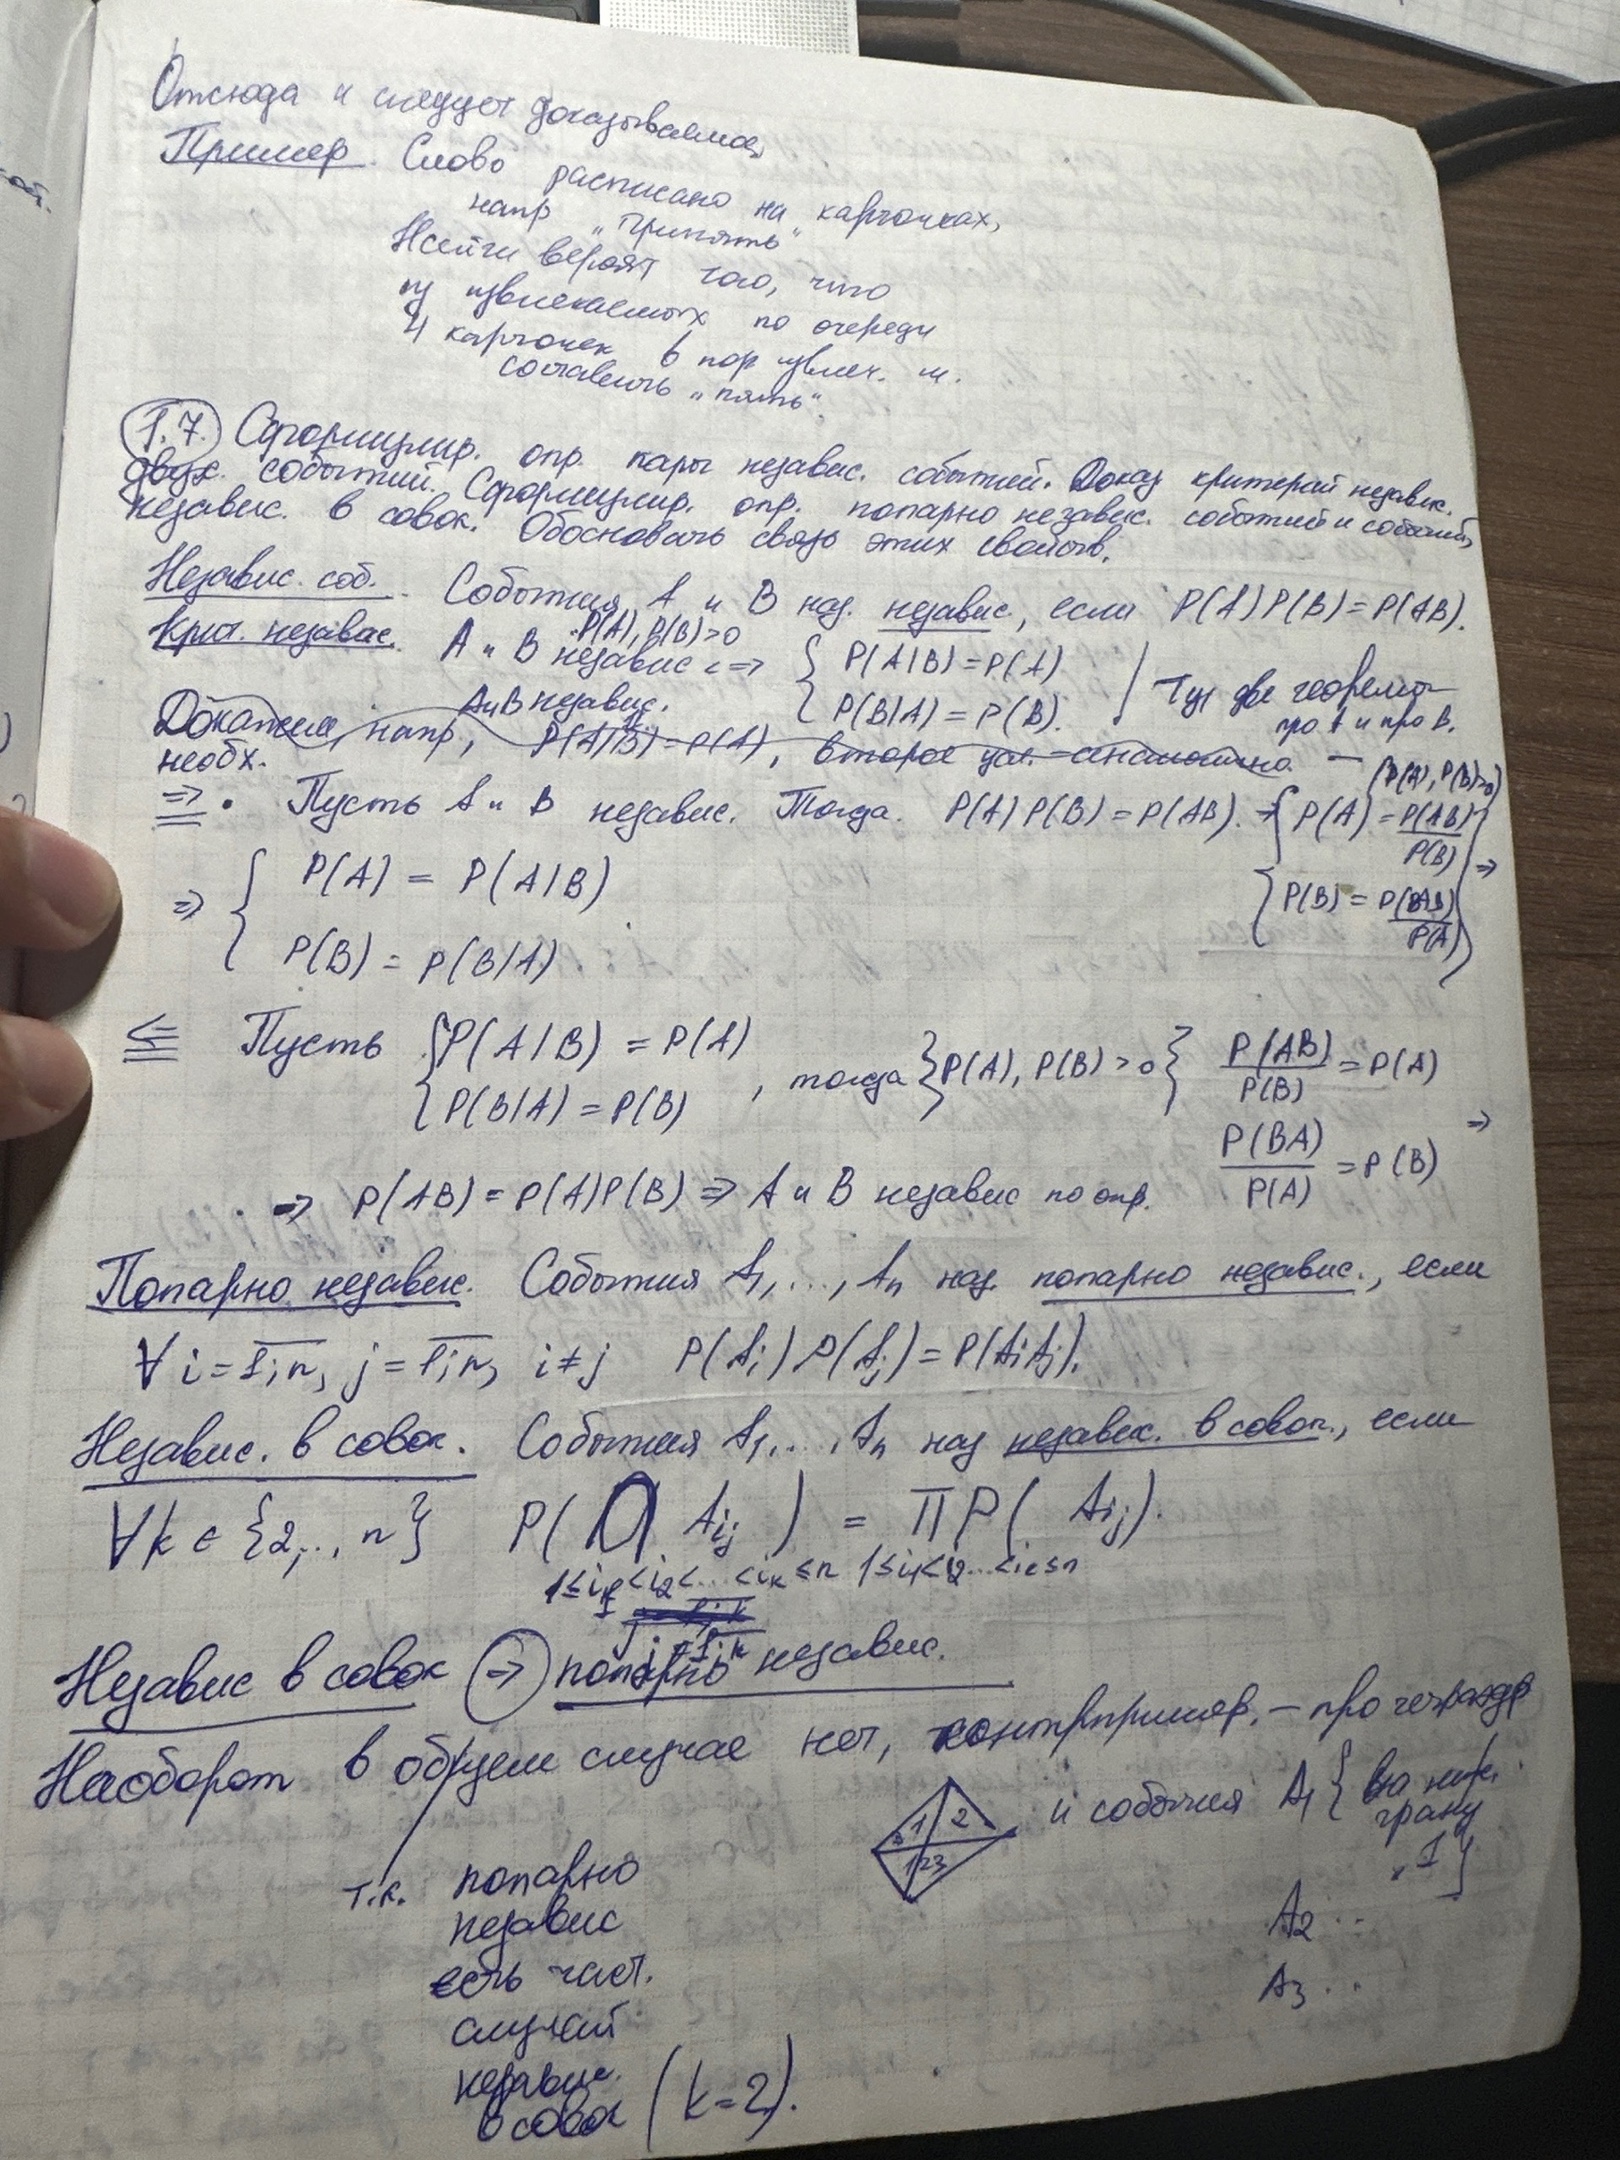 Отсюда и следует доказываемое
Пример. Слово расписано на карточках,
напр „Принять“
Найти вероят того, что
из извлекаемых по очереди
4 карточек в пор извлеч. м.
составить „пять“.
1.7. Сформулир. опр. пары независ. событий. Доказ критерий независ.
двух. событий. Сформулир. опр. попарно независ. событий и событий,
независ. в совок. Обосновать связь этих свойств.
Независ. соб. События A и B наз. независ, если P(A)P(B)=P(AB).
P(A), P(B)>0
Крит. независ. A и B независ <=> { P(A|B)=P(A)
P(B|A)=P(B). | Тут две теоремы
про A и про B.
A и B независ.
Докажем, напр, P(A|B)=P(A), второе усл. аналогично. —
необх.
(P(A), P(B)>0)
=> . Пусть A и B независ. Тогда. P(A)P(B)=P(AB). => { P(A) = P(AB)/P(B)
{ P(B) = P(BA)/P(A) } =>
=> { P(A) = P(A|B)
P(B) = P(B|A)
<= Пусть { P(A|B) = P(A)
P(B|A) = P(B) , тогда } P(A), P(B) > 0 { P(AB)/P(B) = P(A)
P(BA)/P(A) = P(B) =>
=> P(AB) = P(A)P(B) => A и B независ по опр.
Попарно независ. События A₁, ..., Aₙ наз. попарно независ., если
∀ i = 1;n, j = 1;n, i ≠ j P(Aᵢ)P(Aⱼ) = P(AᵢAⱼ).
Независ. в совок. События A₁, ..., Aₙ наз независ. в совок., если
∀k ∈ {2,.., n} P(⋂ A_{i_j}) = ΠP(A_{i_j}).
1≤i₁<i₂<...<iₖ≤n 1≤i₁<i₂...<iₖ≤n
j=1;k
Независ в совок => попарно независ.
Наоборот в общем случае нет, контрпример. – про тетраэдр
1 2
3
123
и события A₁ { на ниж.
грани
„1“ }
A₂ ..
A₃ ..
т.к. попарно
независ
есть част.
случай
независ.
в совок (k=2).